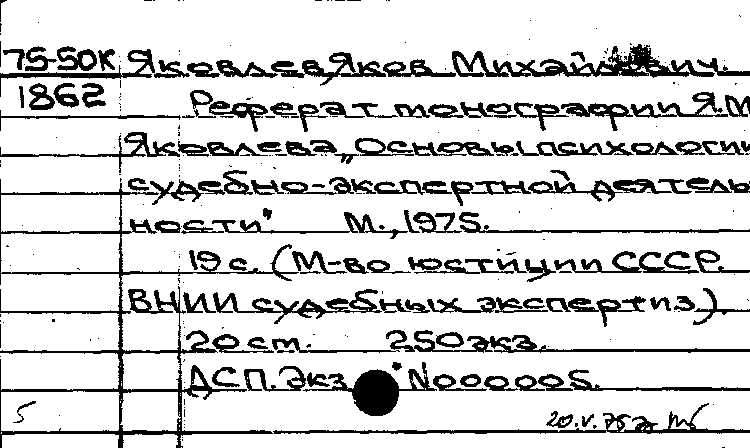 75-50К Яковлев, Яков Михайлович.
1862 Реферат монографии Я.М.
Яковлева „Основы психологии
судебно-экспертной деятель
ности" М., 1975.
19 с. (М-во юстиции СССР.
ВНИИ судебных экспертиз).
20 см. 250 экз.
ДСП. Экз. N000005.
5 20.V.75